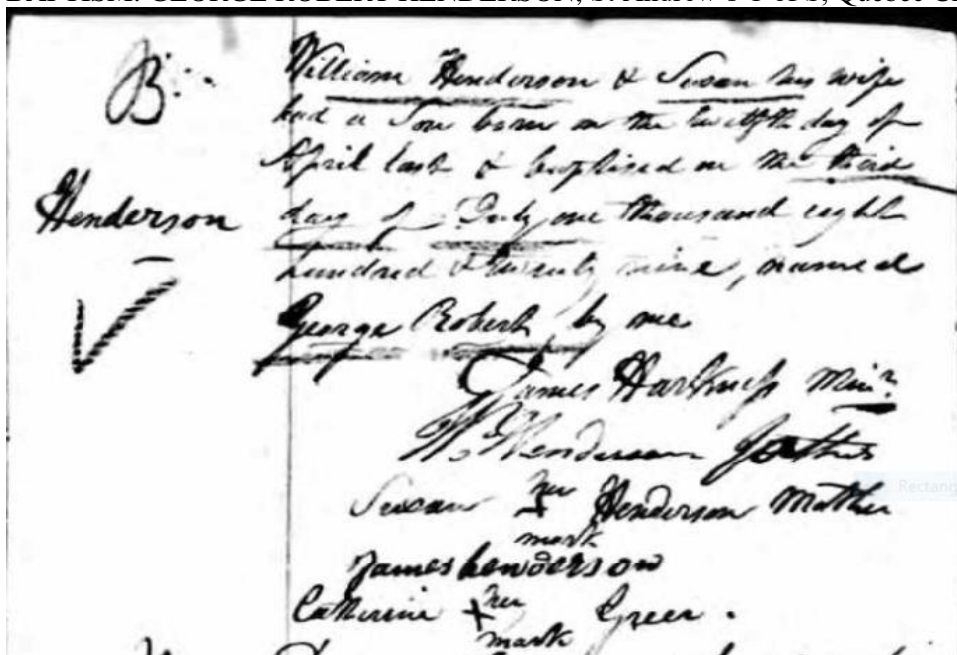 BAPTISM: GEORGE ROBERT HENDERSON, St Andrew's
B.
Henderson
William Henderson & Susan his wife
had a Son born on the twelfth day of
April last & baptised on the third
day of July one thousand eight
hundred & twenty nine, named
George Robert by me
James Harkness Minr.
Wm Henderson father
Susan her + mark Henderson Mother
James henderson
Catherine her + mark Greer.
Rectang